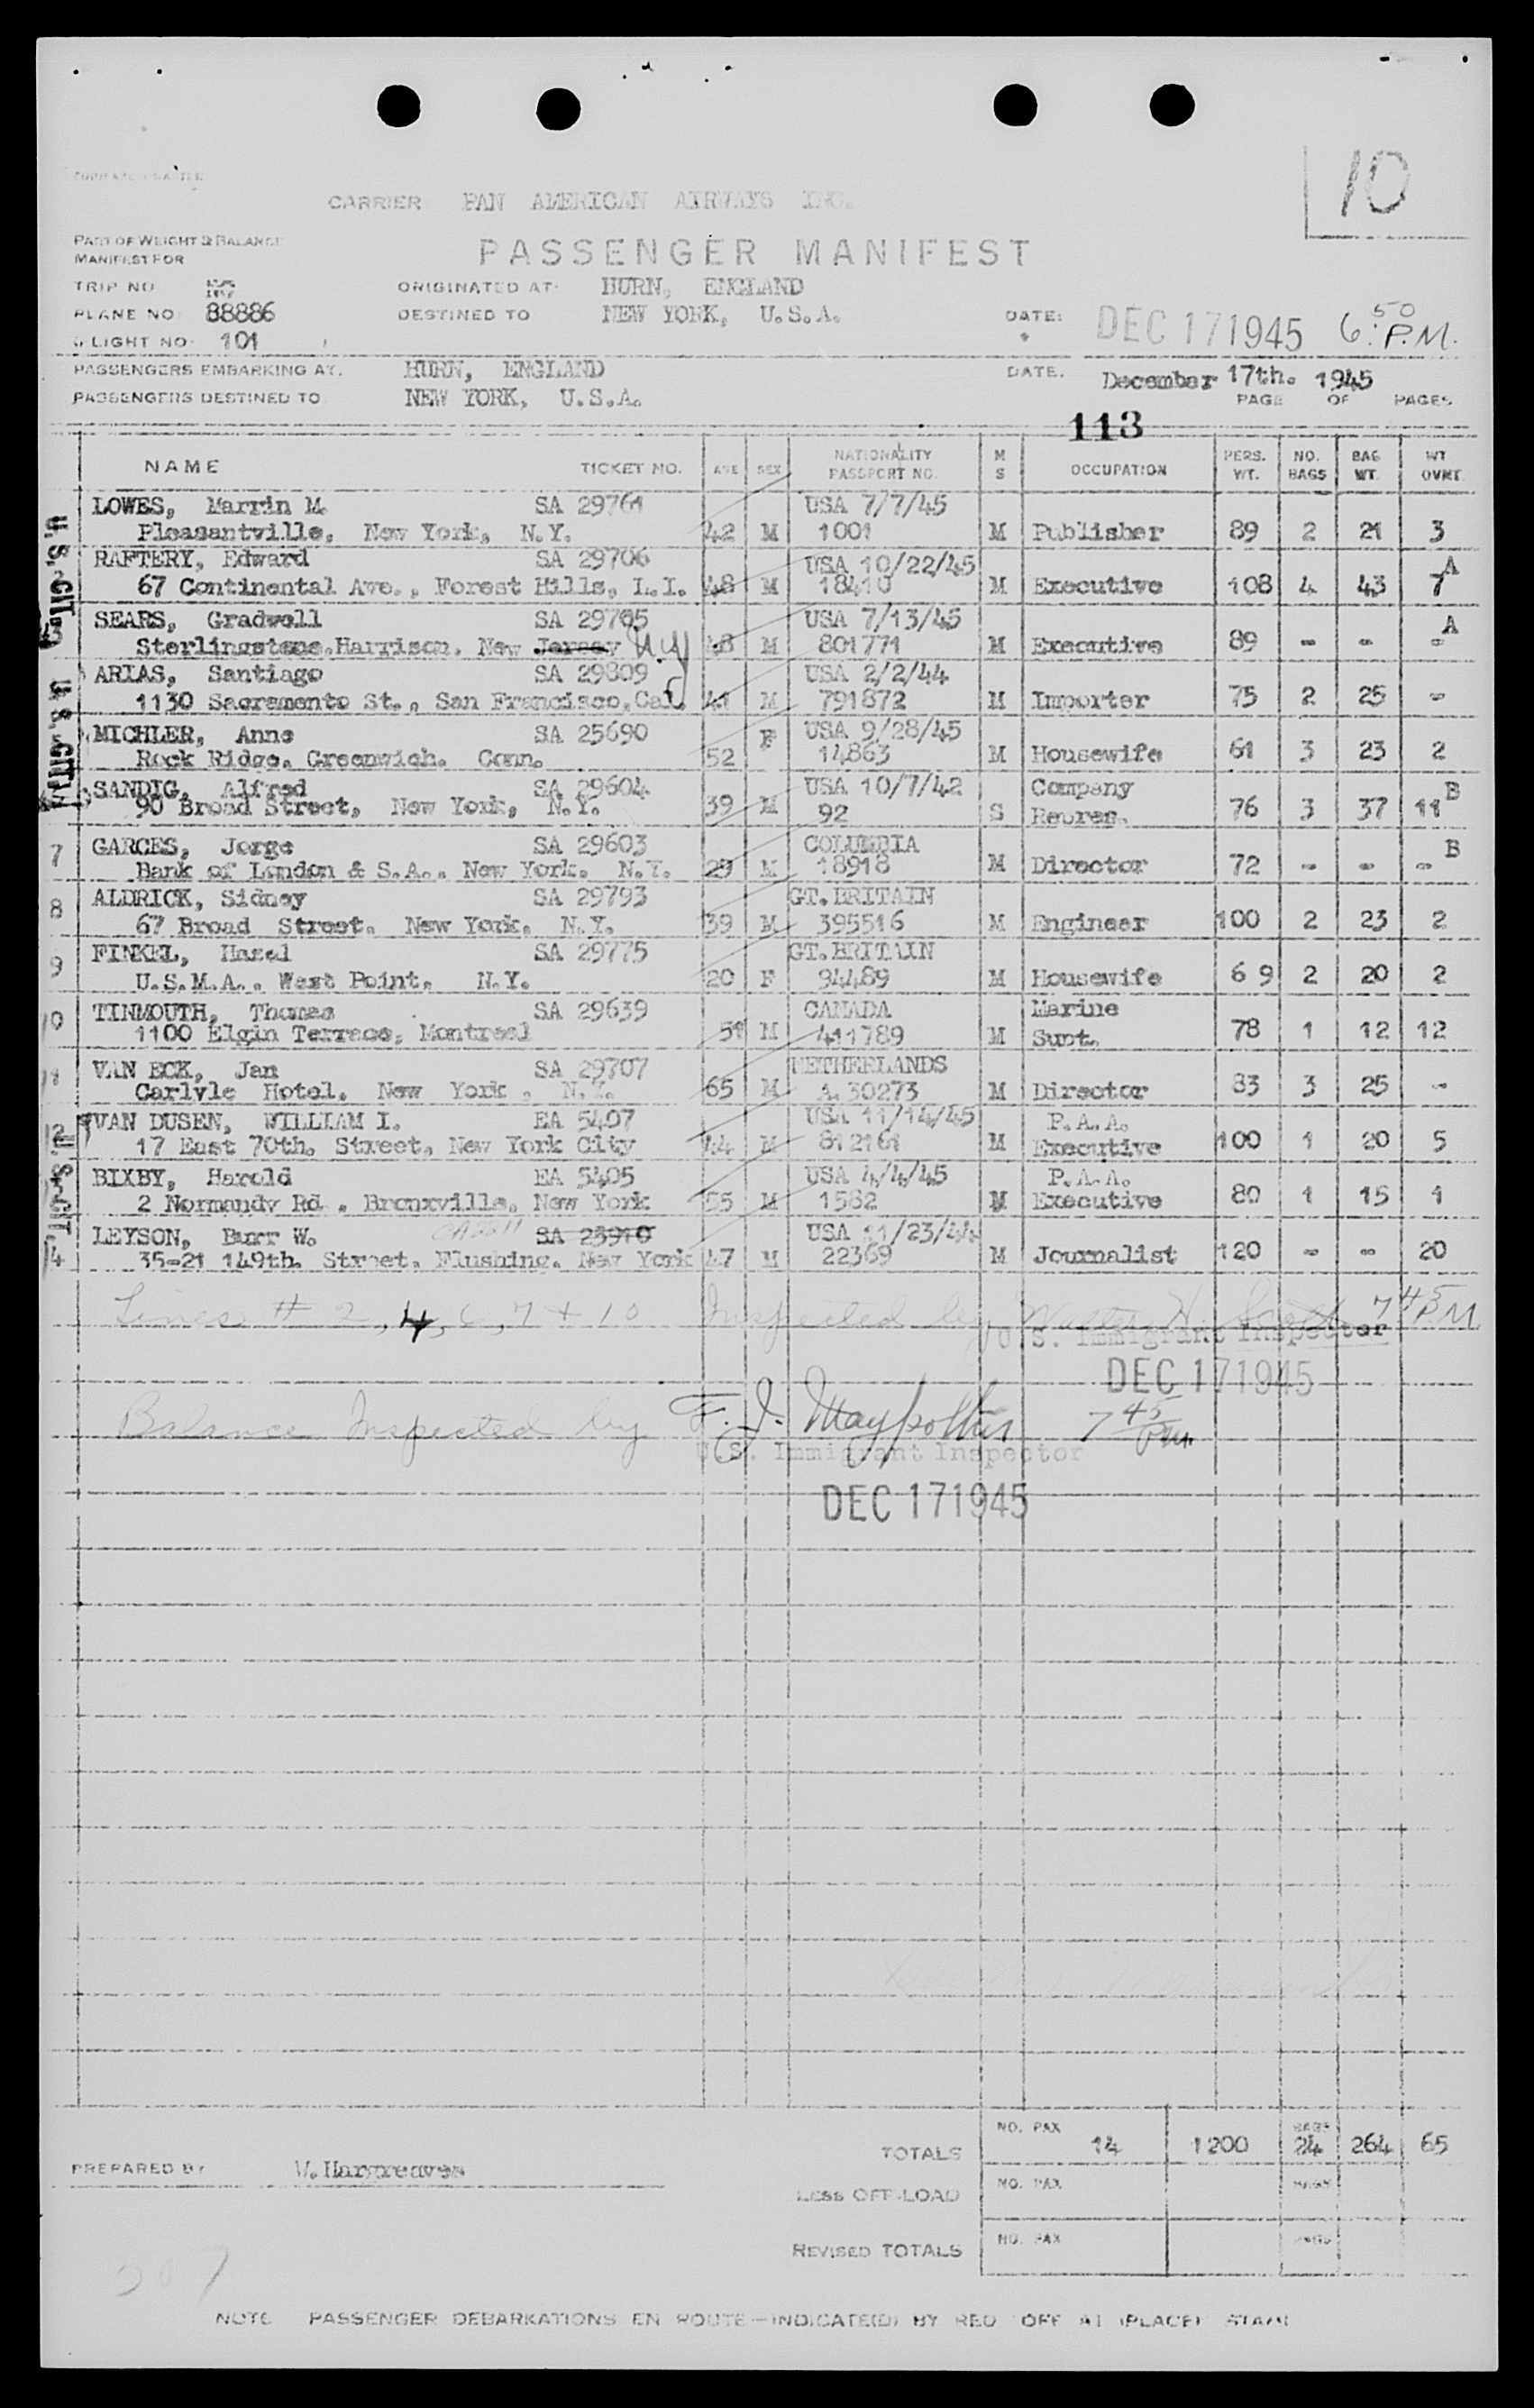 10
CARRIER PAN AMERICAN AIRWAYS INC.
PART OF WEIGHT & BALANCE
MANIFEST FOR
PASSENGER MANIFEST
TRIP NO
ORIGINATED AT: HURN, ENGLAND
PLANE NO. 88886
DESTINED TO NEW YORK, U.S.A.
DATE: DEC 17 1945 6:50 P.M.
FLIGHT NO. 101
PASSENGERS EMBARKING AT. HURN, ENGLAND
DATE. December 17th. 1945
PASSENGERS DESTINED TO NEW YORK, U.S.A.
PAGE OF PAGES
113
NAME TICKET NO. AGE SEX NATIONALITY PASSPORT NO. M S OCCUPATION PERS. WT. NO. BAGS BAG WT. WT OVRT
LOWES, Marrin M. SA 29761 USA 7/7/45
Pleasantville, New York, N.Y. 42 M 1001 M Publisher 89 2 21 3
RAFTERY, Edward SA 29706 USA 10/22/45 A
67 Continental Ave., Forest Hills, L.I. 48 M 18410 M Executive 108 4 43 7
SEARS, Gradwell SA 29705 USA 7/13/45 A
Sterlingstone, Harrison, New Jersey N.Y. 48 M 801771 M Executive 89 - - -
ARIAS, Santiago SA 29809 USA 2/2/44
1130 Sacramento St., San Francisco, Cal. 41 M 791872 M Importer 75 2 25 -
MICHLER, Anne SA 25690 F USA 9/28/45
Rock Ridge, Greenwich, Conn. 52 14863 M Housewife 61 3 23 2
SANDIG, Alfred SA 29604 USA 10/7/42 Company B
90 Broad Street, New York, N.Y. 39 M 92 S Repres. 76 3 37 11
7 GARCES, Jorge SA 29603 COLUMBIA B
Bank of London & S.A., New York, N.Y. 29 M 18918 M Director 72 - - -
8 ALDRICK, Sidney SA 29793 GT. BRITAIN
67 Broad Street, New York, N.Y. 39 M 395516 M Engineer 100 2 23 2
9 FINKEL, Hazel SA 29775 GT. BRITAIN
U.S.M.A., West Point, N.Y. 20 F 94489 M Housewife 69 2 20 2
10 TINMOUTH, Thomas SA 29639 CANADA Marine
1100 Elgin Terrace, Montreal 51 M 411789 M Supt. 78 1 12 12
11 VAN ECK, Jan SA 29707 NETHERLANDS
Carlyle Hotel, New York, N.Y. 65 M A.30273 M Director 83 3 25 -
12 VAN DUSEN, WILLIAM I. EA 5407 USA 11/14/45 P.A.A.
17 East 70th. Street, New York City 44 M 812161 M Executive 100 1 20 5
BIXBY, Harold EA 5405 USA 4/4/45 P.A.A.
2 Normandy Rd., Bronxville, New York 55 M 1582 M Executive 80 1 15 1
LEYSON, Burr W. SA 23910 USA 11/23/44
14 35-21 149th. Street, Flushing, New York 47 M 22369 M Journalist 120 - - 20
Lines # 2, 4, 6, 7 + 10 Inspected by Walter H. 7 45 PM
U.S. Immigrant Inspector
DEC 17 1945
Balance Inspected by F. J. 7 45 P.M.
U.S. Immigrant Inspector
DEC 17 1945
TOTALS NO. PAX 14 1200 BAGS 24 264 65
PREPARED BY W. Hargreaves
LESS OFF-LOAD NO. PAX BAGS
REVISED TOTALS NO. PAX BAGS
NOTE PASSENGER DEBARKATIONS EN ROUTE—INDICATE(D) BY RED OFF AT (PLACE) STAMP